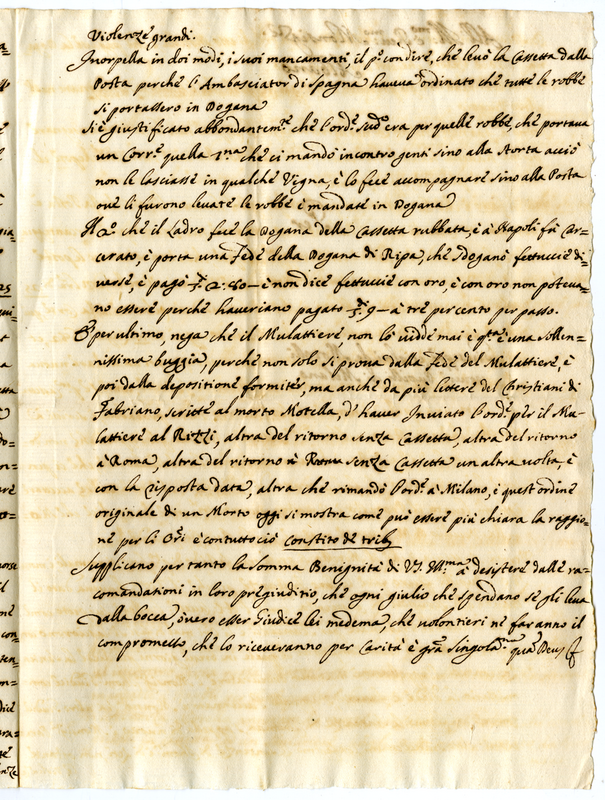 Violenze grandi.
Inorpella in doi modi, i suoi mancamenti, il p.º con dire, che levò la Cassetta dalla
Posta perche l'Ambasciator di Spagna haveva ordinato che tutte le robbe
si portassero in Dogana
Si è giustificato abbondantem.te che l'ord.e sud.o era per quelle robbe, che portava
un Corr.e quella 2.na che ci mandò incontro genti sino alla Storta acciò
non le lasciasse in qualche Vigna, è lo fece accompagnare sino alla Posta
ove li furono levate le robbe è mandate in Dogana
Il 2.º che il Ladro fece la Dogana della Cassetta rubbata, è à Napoli fù Car=
cerato, è porta una Fede della Dogana di Ripa, che Doganò fettuccie di=
verse, è pagò 2:80 - è non dice fettuccie con oro, è con oro non poteva=
no essere perche haveriano pagato 9 - à tre per cento per passo.
È per ultimo, nega che il Mulattiere, non lo vidde mai è q.ta è una sollen=
nissima buggia, perche non solo si prova dalla Fede del Mulattiere, è
poi dalla depositione formiter, ma anche da più lettere del Christiani di
Fabriano, scritte al morto Motella, d'haver Inviato l'ord.e per il Mu-
lattiere al Rizzi, altra del ritorno senza Cassetta, altra del ritorno
à Roma, altra del ritorno à senza Cassetta un altra volta, è
con la risposta data, altra che rimandò l'ord.e à Milano, è quest'ordine
originale di un Morto oggi si mostra come può essere più chiara la raggio=
ne per li O.ri è contuttociò constito de trib.
Supplicano per tanto la somma Benignità di V.S. Ill.ma à desistere dalle ra=
comandationi in loro pregiuditio, che ogni giulio che spendano se gli leva
dalla bocca, overo esser Giudice lei medema, che volontieri ne faranno il
compromesso, che lo riceveranno per Carità è gra singola.ma quã Deus